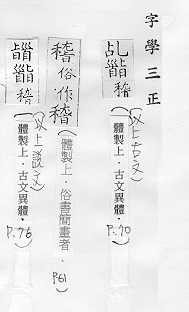 字學三正
乩𮎰稽（體製上．古文異體．P.70
（以上古文）
稽俗．作稽（體製上．俗書簡畫者．P61）
稽（體製上．古文異體．P.76
（以上說文）